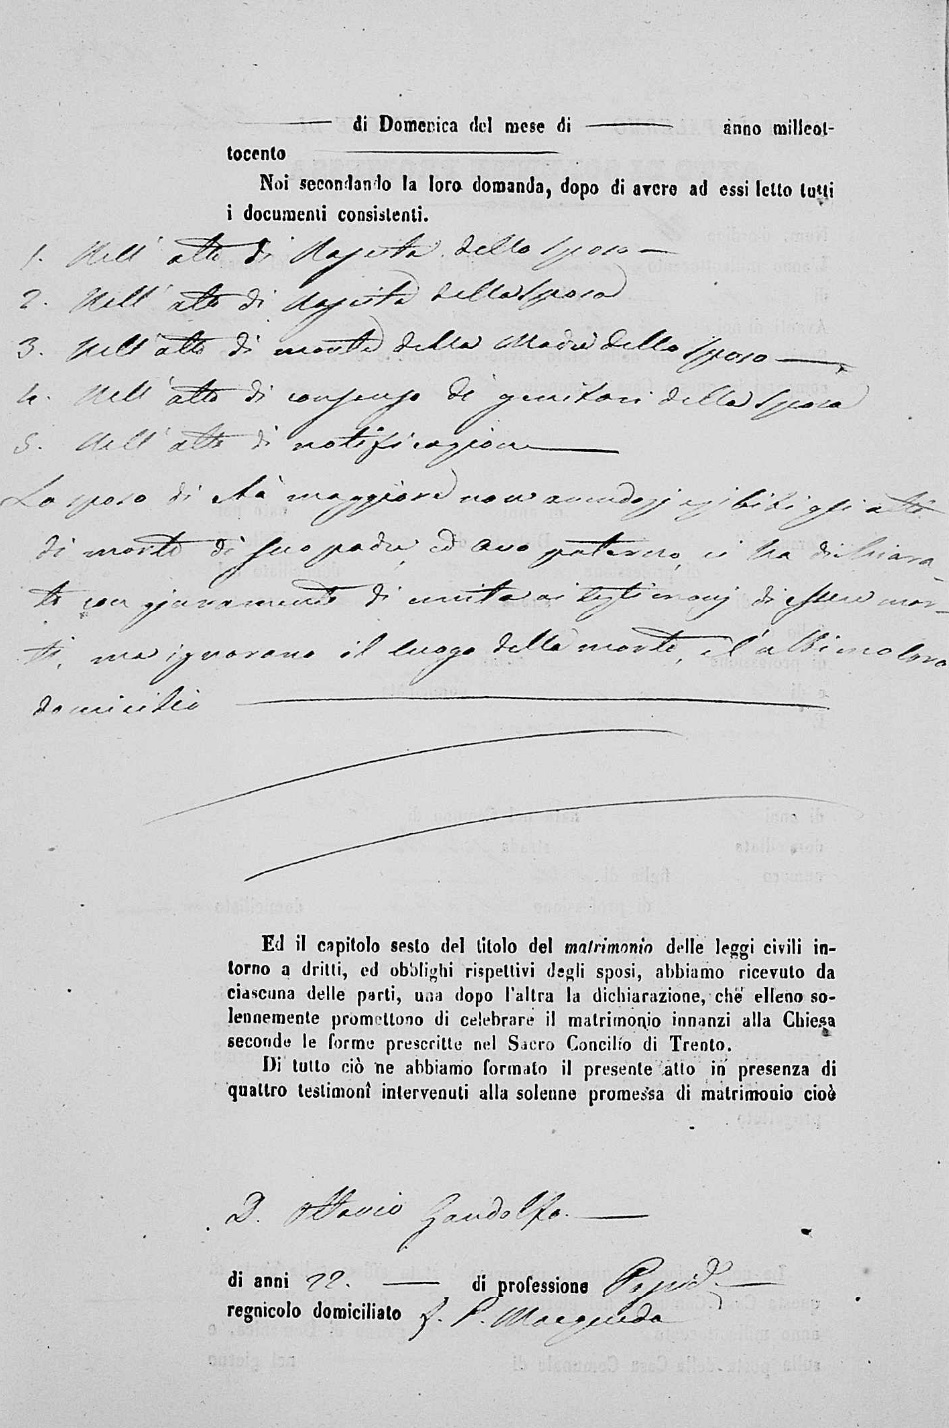 di Domenica del mese di anno milleot-
tocento
Noi secondando la loro domanda, dopo di avere ad essi letto tutti
i documenti consistenti.
1. Nell' atto di Nascita dello sposo
2. Nell' atto di Nascita della Sposa
3. Nell' atto di morte della Madre dello Sposo
4. Nell' atto di consenso di genitori della Sposa
5. Nell' atto di notificazione
Lo sposo di età maggiore non avendo esibiti gli atti
di morte di suo padre, ed avo paterno, ci ha dichiara-
to con giuramento di unita ai testimonj di essere mor-
ti, ma ignorano il luogo della morte, e l'ultimo loro
domicilio
Ed il capitolo sesto del titolo del matrimonio delle leggi civili in-
torno a dritti, ed obblighi rispettivi degli sposi, abbiamo ricevuto da
ciascuna delle parti, una dopo l'altra la dichiarazione, che elleno so-
lennemente promettono di celebrare il matrimonio innanzi alla Chiesa
seconde le forme prescritte nel Sacro Concilio di Trento.
Di tutto ciò ne abbiamo formato il presente atto in presenza di
quattro testimoni intervenuti alla solenne promessa di matrimonio cioè
D. Ottavio Gandolfo
di anni 22. di professione
regnicolo domiciliato